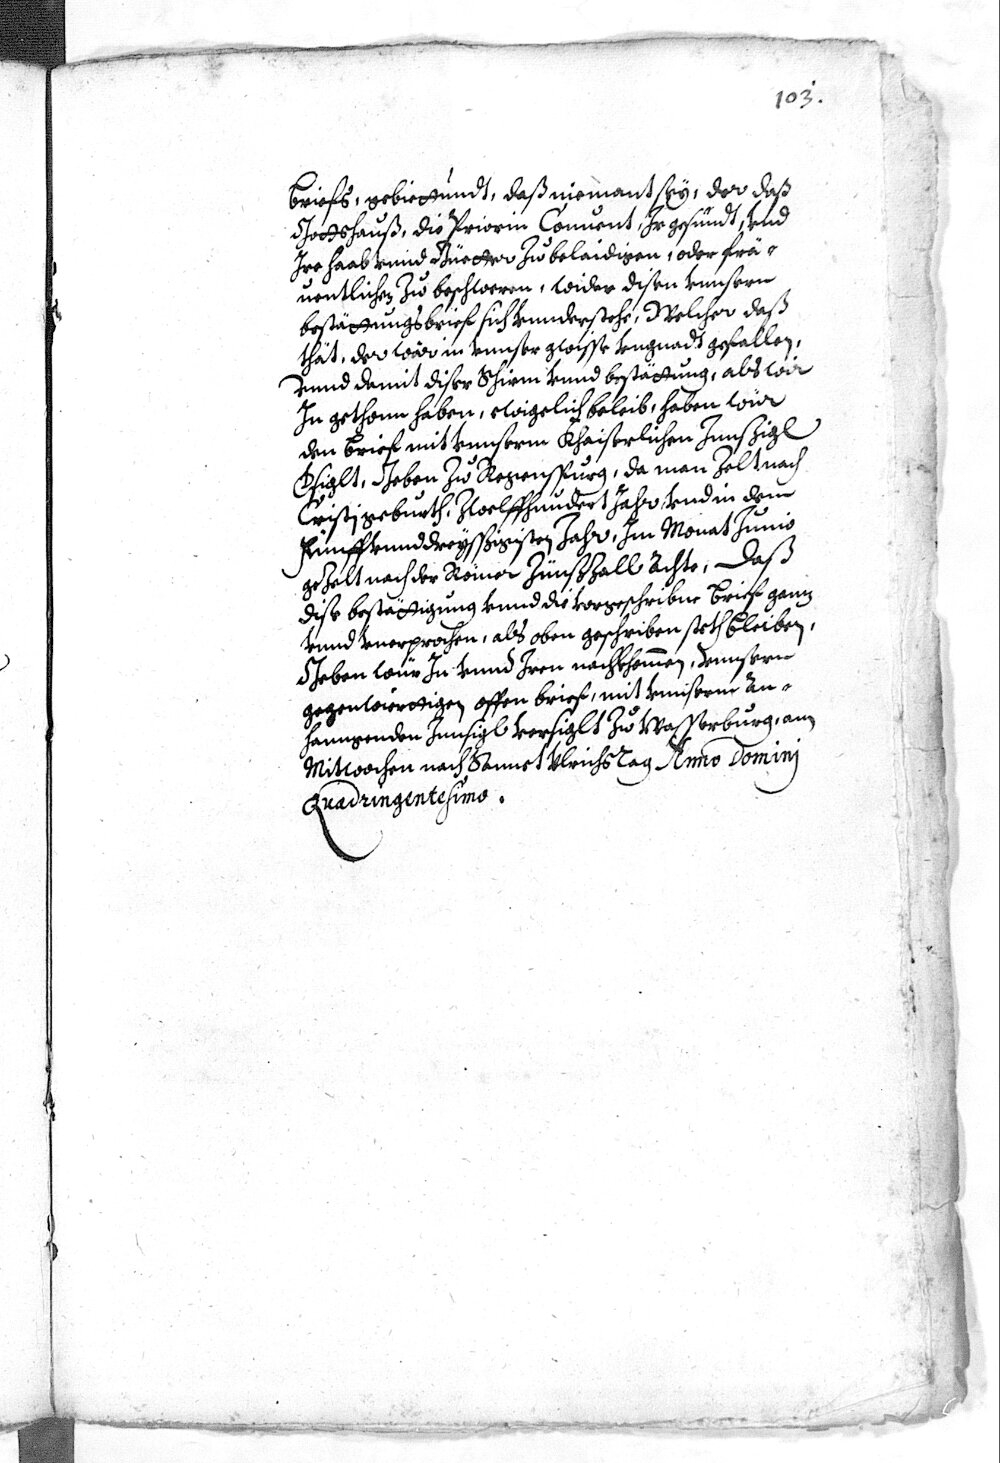 103.
Briefs, gebiettundt, daß niemant sey, der daß
Gottshauß, die Priorin Conuent, Ir gesündt, vnd
Ire haab vnnd Güetter Zu belaidigen, oder frä-
uentlichen Zu beschweren, wider disen vnnsern
bestättungsbrief sich vnnderstehe, Welcher daß
thät, der wär in vnnser gwisse vngnadt gefallen,
vnnd damit diser Schirm vnnd bestättung, als wir
In gethonn haben, ewigelich beleib, haben wür
den Brief mit vnnserm Khaiserlichen Innsigl
Gsiglt, Geben Zu Regenspurg, da man Zelt nach
Cristj geburth, Zwelffhundert Jahr, vnd in dem
Fünffvnnddreyssigisten Jahr, Im Monat Junio
gezelt nach der Römer Zünßzall Achte, Daß
dise bestättigung vnnd die vorgeschribne Brief ganz
vnnd vnerprochen, als oben geschriben steth bleiben,
Geben wür In vnnd Iren nachkhommen, vnnsern
gegenwierttigen offen brief, mit vnnserm An-
hanngenden Innsigl versiglt Zu Wasserburg, am
Mitwochen nach Sannct Vlrichs Tag Anno Dominj
Quadringentesimo.